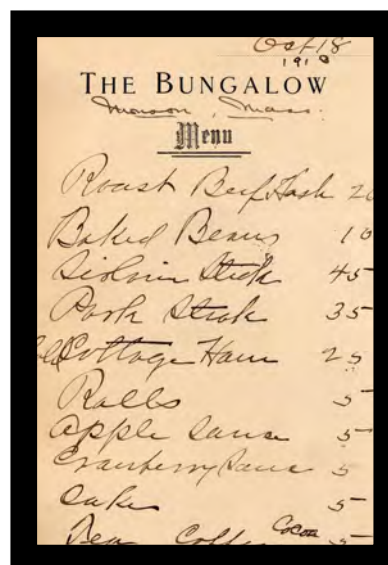 Oct 18
1910
THE BUNGALOW
Monson, Mass.
Menu
Roast Beef Hash 20
Baked Beans 10
Sirloin Steak 45
Pork Steak 35
Cottage Ham 25
Rolls 5
Apple Sauce 5
Cranberry Sauce 5
Cake 5
Tea Coffee Cocoa 5